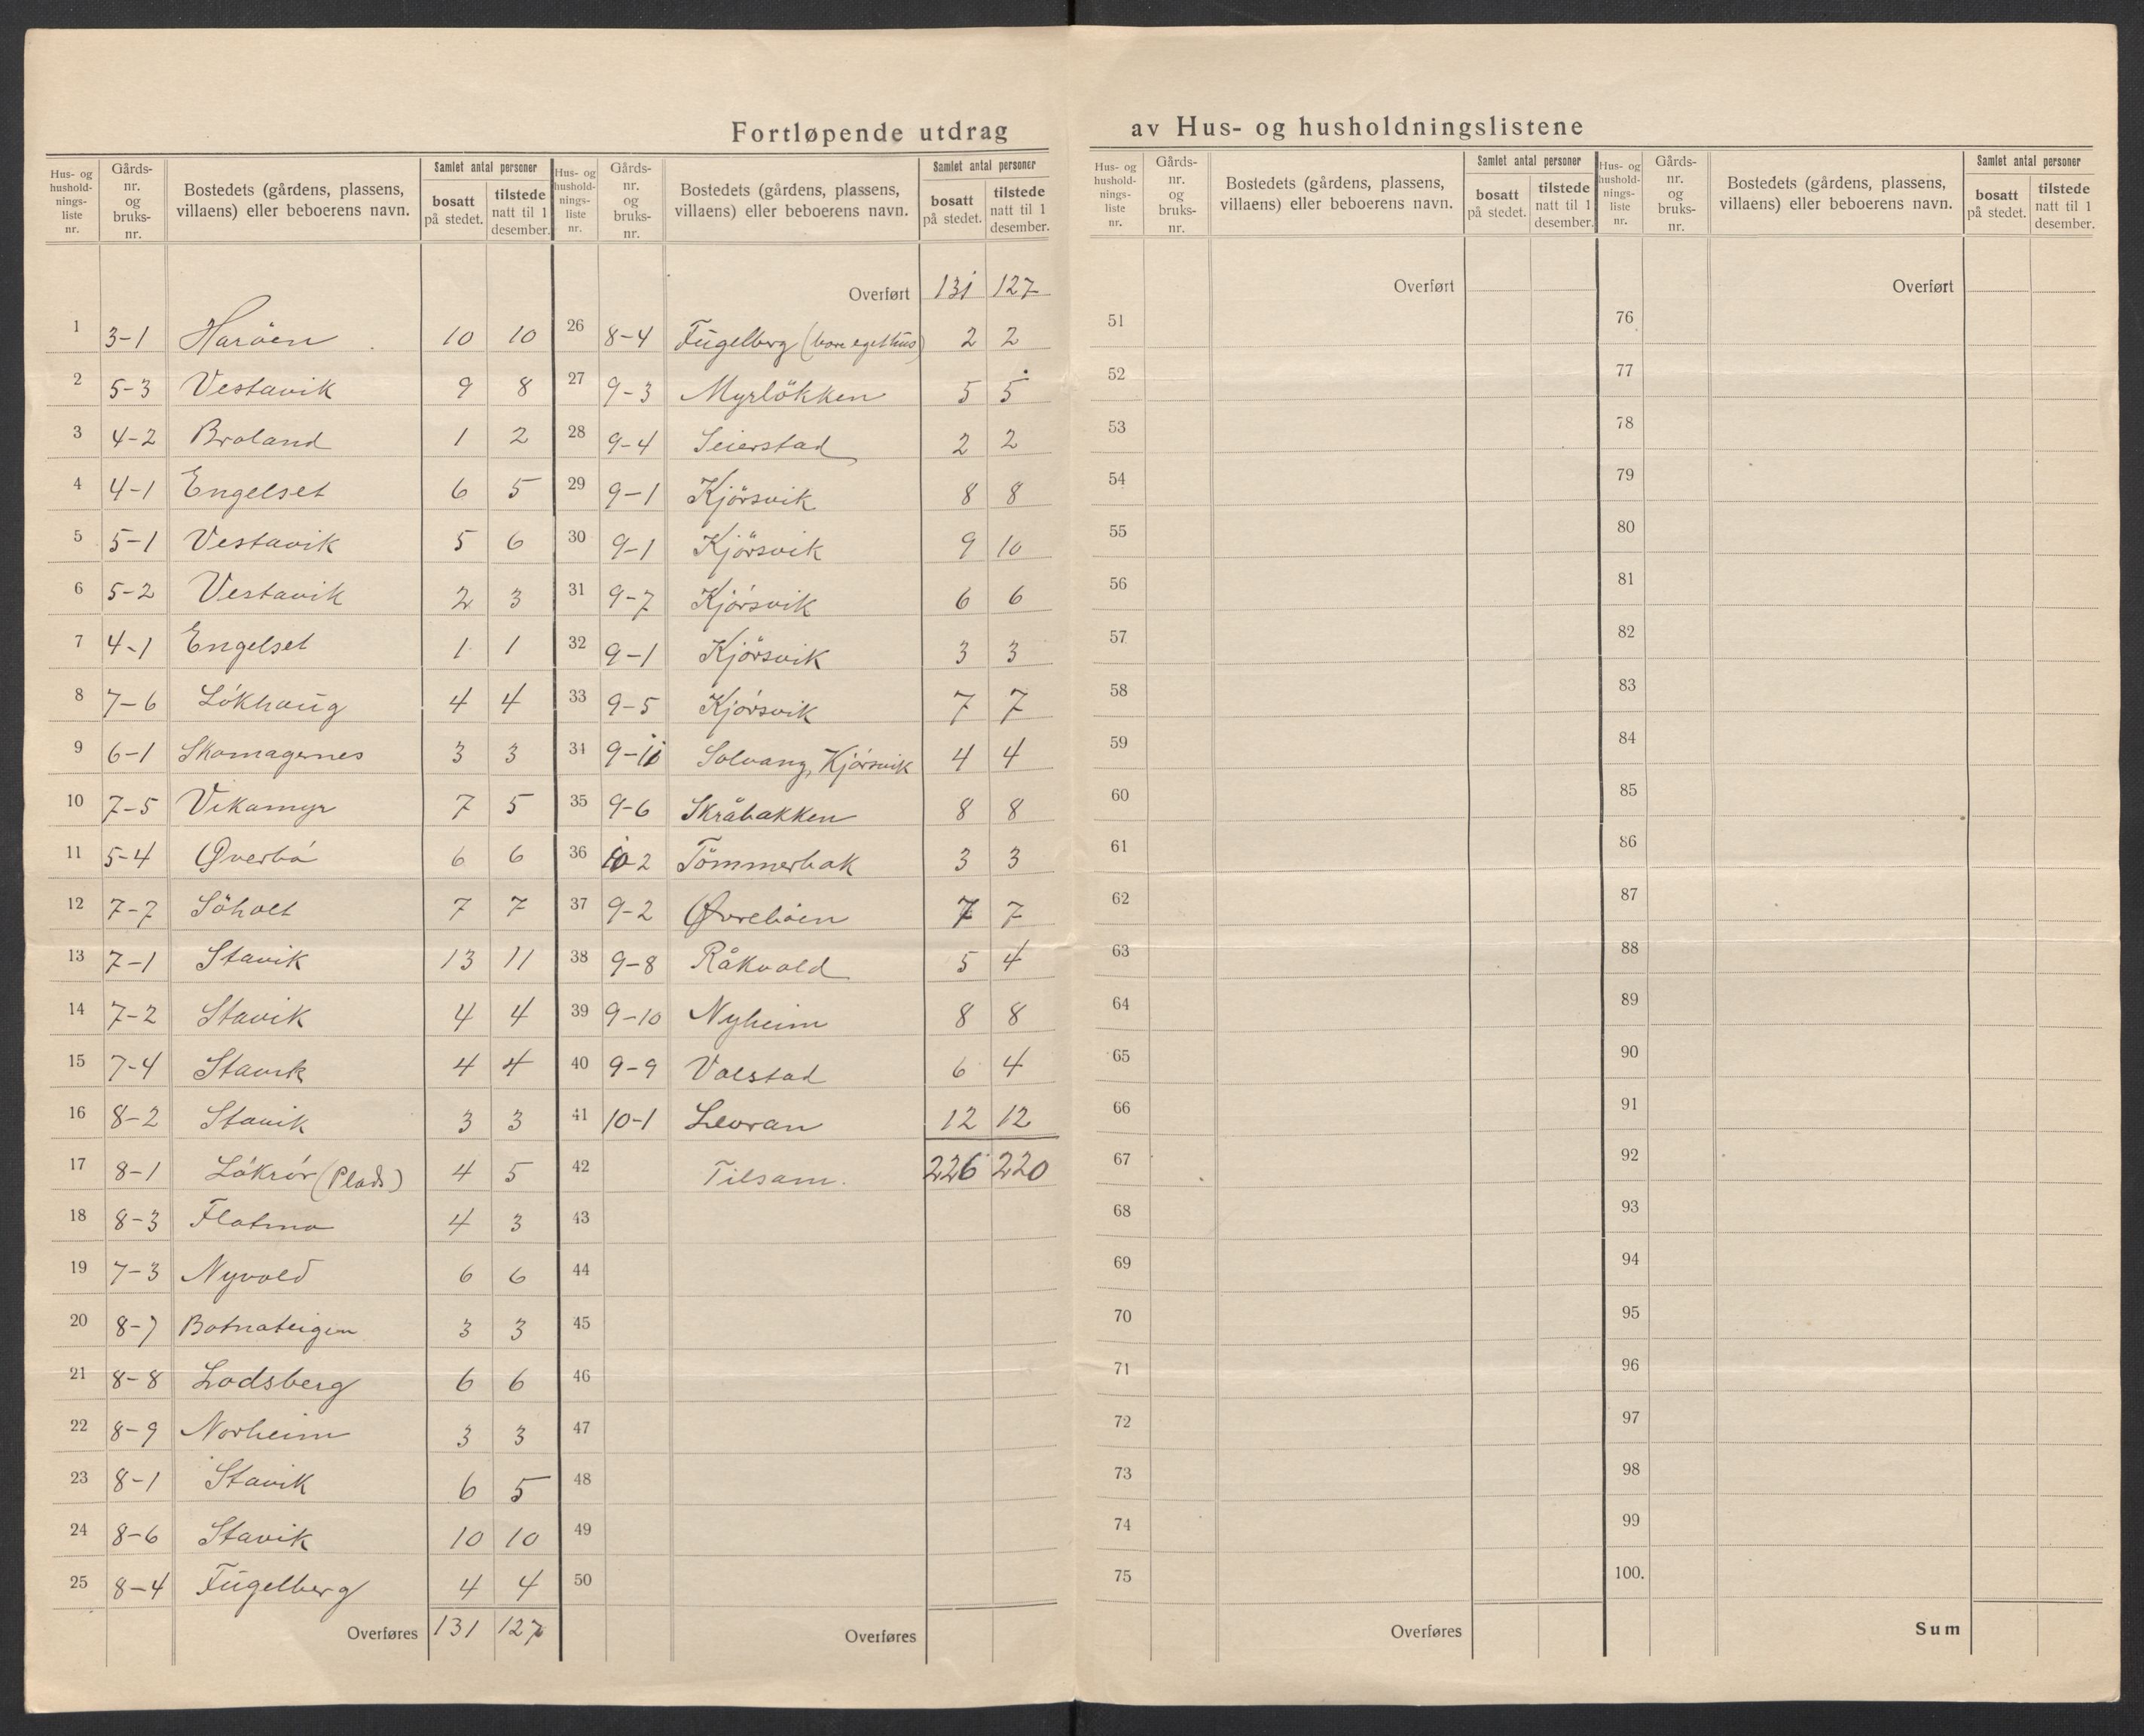 Fortløpende utdrag av Hus- og husholdningslistene
Hus- og hushold-nings-liste nr. | Gårds-nr. og bruks-nr. | Bostedets (gårdens, plassens, villaens) eller beboerens navn. | Samlet antal personer | bosatt på stedet. | tilstede natt til 1 desember.
1 3-1 Haröen 10 10
2 5-3 Vestavik 9 8
3 4-2 Braland 1 2
4 4-1 Engelset 6 5
5 5-1 Vestavik 5 6
6 5-2 Vestavik 2 3
7 4-1 Engelset 1 1
8 7-6 Lökhaug 4 4
9 6-1 Skomagernes 3 3
10 7-5 Vikamyr 7 5
11 5-4 Øverbö 6 6
12 7-7 Söholt 7 7
13 7-1 Stavik 13 11
14 7-2 Stavik 4 4
15 7-4 Stavik 4 4
16 8-2 Stavik 3 3
17 8-1 Lökrör (Plads) 4 5
18 8-3 Flatmo 4 3
19 7-3 Nyvold 6 6
20 8-7 Botnateigen 3 3
21 8-8 Lodsberg 6 6
22 8-9 Norheim 3 3
23 8-1 Stavik 6 5
24 8-6 Stavik 10 10
25 8-4 Fugelberg 4 4
Overføres 131 127
Hus- og hushold-nings-liste nr. | Gårds-nr. og bruks-nr. | Bostedets (gårdens, plassens, villaens) eller beboerens navn. | Samlet antal personer | bosatt på stedet. | tilstede natt til 1 desember.
Overført 131 127
26 8-4 Fugelberg (bare eget hus) 2 2
27 9-3 Myrlökken 5 5
28 9-4 Seierstad 2 2
29 9-1 Kjörsvik 8 8
30 9-1 Kjörsvik 9 10
31 9-7 Kjörsvik 6 6
32 9-1 Kjörsvik 3 3
33 9-5 Kjörsvik 7 7
34 9-11 Solvang, Kjörsvik 4 4
35 9-6 Skråbakken 8 8
36 10-2 Tömmerbak 3 3
37 9-2 Øvreböen 7 7
38 9-8 Råkvold 5 4
39 9-10 Nyheim 8 8
40 9-9 Valstad 6 4
41 10-1 Levran 12 12
42 Tilsam. 226 220
43
44
45
46
47
48
49
50
Overføres
Hus- og hushold-nings-liste nr. | Gårds-nr. og bruks-nr. | Bostedets (gårdens, plassens, villaens) eller beboerens navn. | Samlet antal personer | bosatt på stedet. | tilstede natt til 1 desember.
Overført
51
52
53
54
55
56
57
58
59
60
61
62
63
64
65
66
67
68
69
70
71
72
73
74
75
Overføres
Hus- og hushold-nings-liste nr. | Gårds-nr. og bruks-nr. | Bostedets (gårdens, plassens, villaens) eller beboerens navn. | Samlet antal personer | bosatt på stedet. | tilstede natt til 1 desember.
Overført
76
77
78
79
80
81
82
83
84
85
86
87
88
89
90
91
92
93
94
95
96
97
98
99
100.
Sum